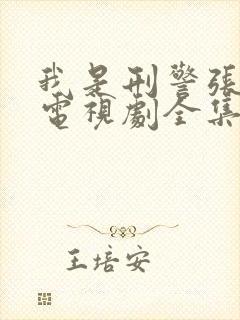 我是刑警張
電視劇全集
王培安